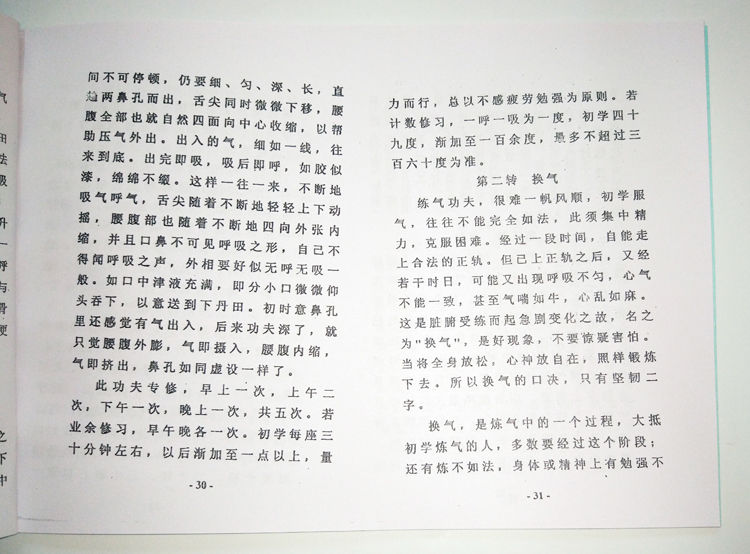 间不可停顿，仍要细、匀、深、长，直
趋两鼻孔而出，舌尖同时微微下移，腰
腹全部也就自然四面向中心收缩，以帮
助压气外出。出入的气，细如一线，往
来到底。出完即吸，吸后即呼，如胶似
漆，绵绵不缀。这样一往一来，不断地
吸气呼气，舌尖随着不断地轻轻上下动
摇，腰腹部也随着不断地四向外张内
缩，并且口鼻不可见呼吸之形，自己不
得闻呼吸之声，外相要好似无呼无吸一
般。如口中津液充满，即分小口微微仰
头吞下，以意送到下丹田。初时意鼻孔
里还感觉有气出入，后来功夫深了，就
只觉腰腹外膨，气即摄入，腰腹内缩，
气即挤出，鼻孔如同虚设一样了。
此功夫专修，早上一次，上午二
次，下午一次，晚上一次，共五次。若
业余修习，早午晚各一次。初学每座三
十分钟左右，以后渐加至一点以上，量
- 30 -
力而行，总以不感疲劳勉强为原则。若
计数修习，一呼一吸为一度，初学四十
九度，渐加至一百余度，最多不超过三
百六十度为准。
第二转 换气
练气功夫，很难一帆风顺，初学服
气，往往不能完全如法，此须集中精
力，克服困难。经过一段时间，自能走
上合法的正轨。但已上正轨之后，又经
若干时日，可能又出现呼吸不匀，心气
不能一致，甚至气喘如牛，心乱如麻。
这是脏腑受练而起急剧变化之故，名之
为"换气"，是好现象，不要惊疑害怕。
当将全身放松，心神放自在，照样锻炼
下去。所以换气的口决，只有坚韧二
字。
换气，是炼气中的一个过程，大抵
初学炼气的人，多数要经过这个阶段；
还有炼不如法，身体或精神上有勉强不
- 31 -
气
田
法
吸
升
一
呼
与
骨
便
之
下
中